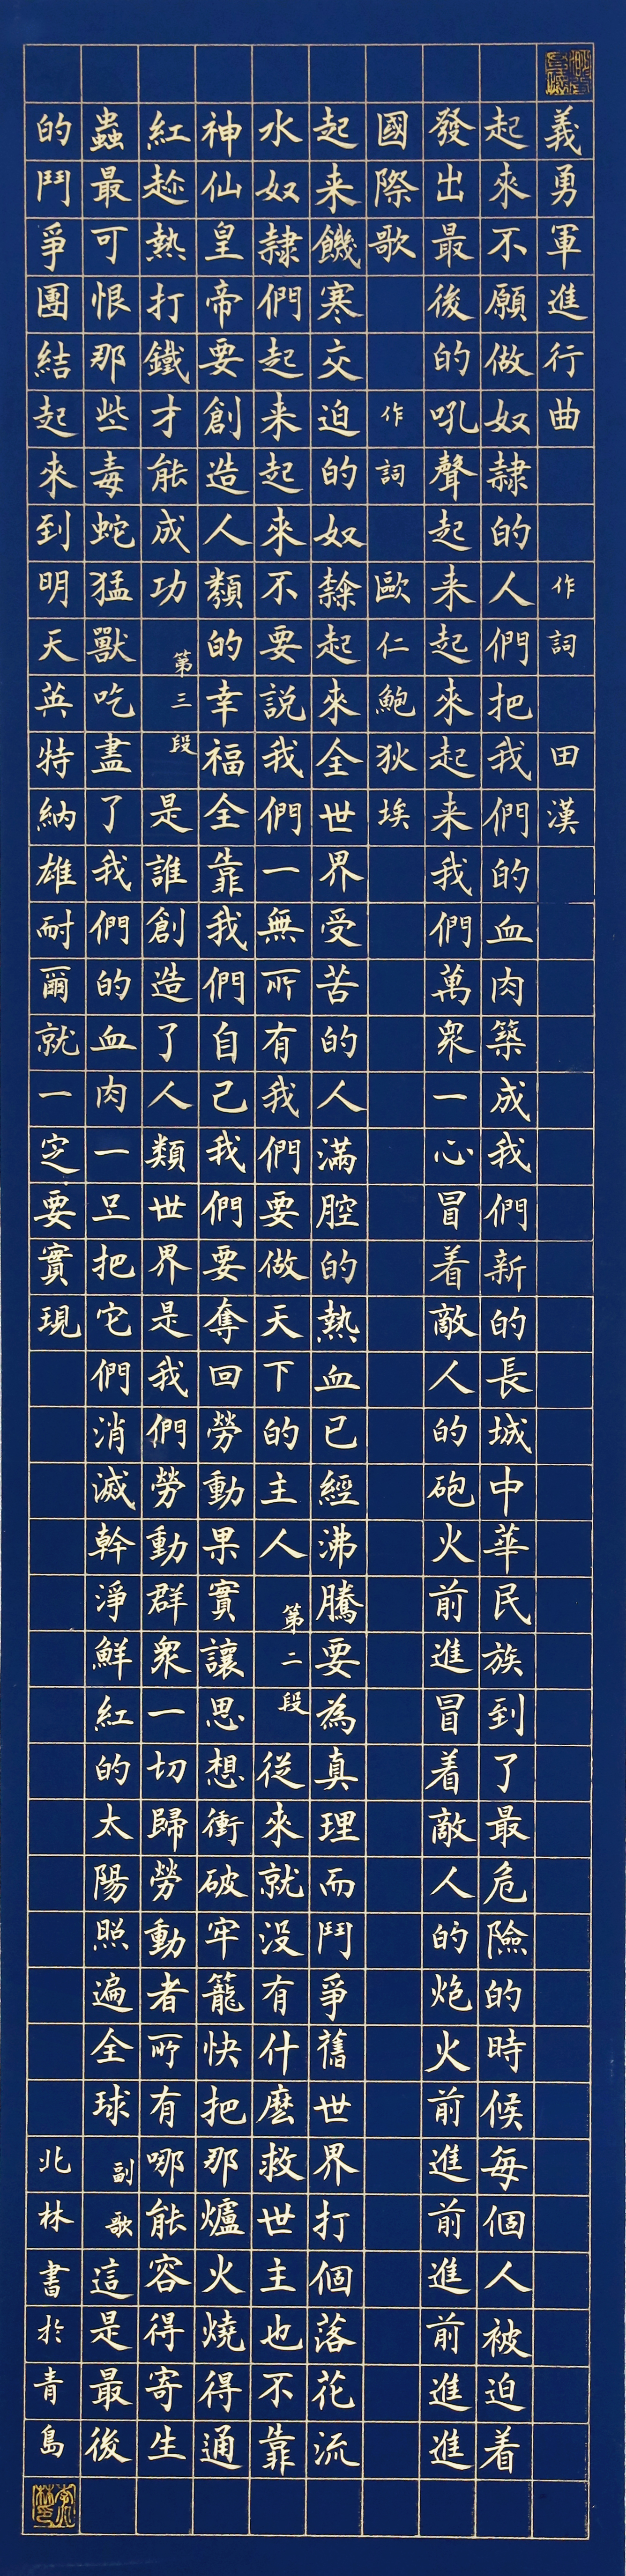 義勇軍進行曲 作詞 田漢
起來不願做奴隸的人們把我們的血肉築成我們新的長城中華民族到了最危險的時候每個人被迫着
發出最後的吼聲起来起來起来我們萬眾一心冒着敵人的砲火前進冒着敵人的炮火前進前進前進進
國際歌 作詞 歐仁鮑狄埃
起来饑寒交迫的奴隸起來全世界受苦的人滿腔的熱血已經沸騰要為真理而鬥爭舊世界打個落花流
水奴隸們起来起來不要說我們一無所有我們要做天下的主人 第二段 從來就没有什麽救世主也不靠
神仙皇帝要創造人類的幸福全靠我們自己我們要奪回勞動果實讓思想衝破牢籠快把那爐火燒得通
紅趁熱打鐵才能成功 第三段 是誰創造了人類世界是我們勞動群眾一切歸勞動者所有哪能容得寄生
蟲最可恨那些毒蛇猛獸吃盡了我們的血肉一旦把它們消滅幹淨鮮紅的太陽照遍全球 副歌 這是最後
的鬥爭團結起來到明天英特納雄耐爾就一定要實現 北林書於青島